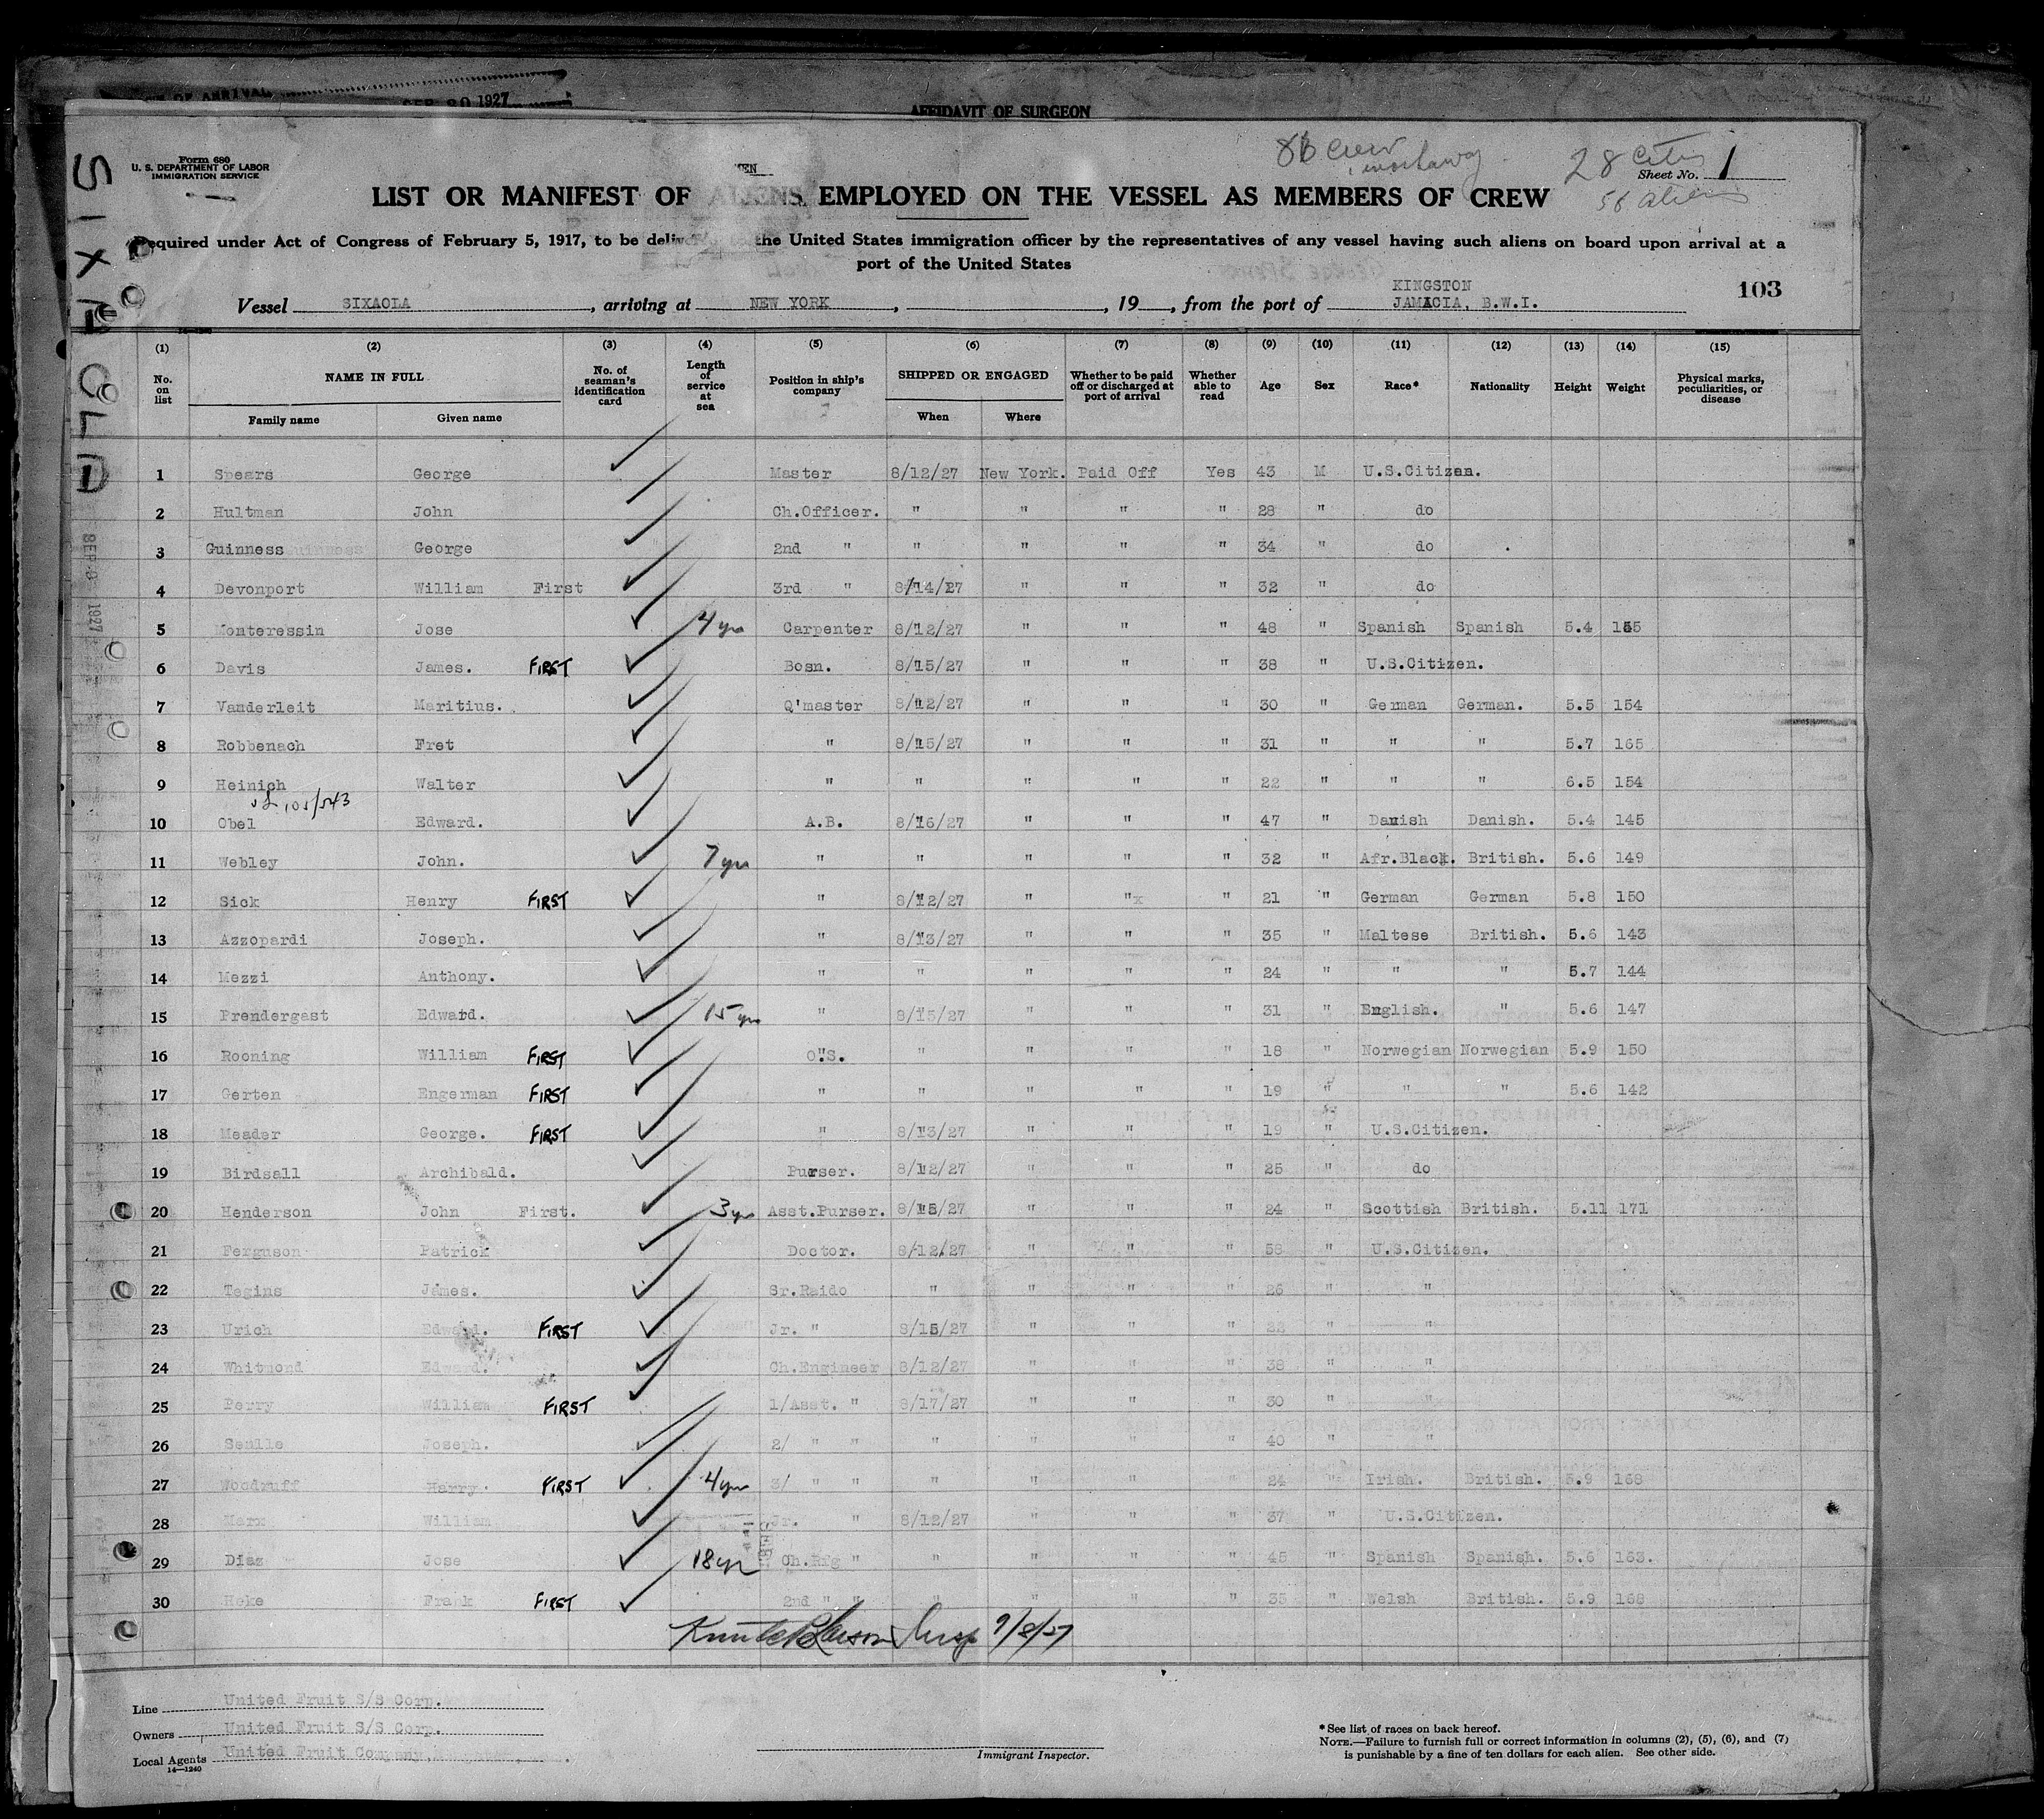 OF ARRIVAL SEP 20 1927
AFFIDAVIT OF SURGEON
Form 680
U. S. DEPARTMENT OF LABOR
IMMIGRATION SERVICE
86 crew
28 Citiz
Sheet No. 1
56 aliens
LIST OR MANIFEST OF ALIENS EMPLOYED ON THE VESSEL AS MEMBERS OF CREW
Required under Act of Congress of February 5, 1917, to be deliver the United States immigration officer by the representatives of any vessel having such aliens on board upon arrival at a
port of the United States
KINGSTON
103
Vessel SIXAOLA, arriving at NEW YORK, , 19 , from the port of JAMACIA, B.W.I.
(1) (2) (3) (4) (5) (6) (7) (8) (9) (10) (11) (12) (13) (14) (15)
No. on list NAME IN FULL Family name Given name No. of seaman's identification card Length of service at sea Position in ship's company SHIPPED OR ENGAGED When Where Whether to be paid off or discharged at port of arrival Whether able to read Age Sex Race* Nationality Height Weight Physical marks, peculiarities, or disease
1 Spears George Master 8/12/27 New York. Paid Off Yes 43 M U.S.Citizen.
2 Hultman John Ch.Officer. " " " " 28 " do
3 Guinness George 2nd " " " " " 34 " do
4 Devonport William First 3rd " 8/14/27 " " " 32 " do
5 Monteressin Jose 4 yrs Carpenter 8/12/27 " " " 48 " Spanish Spanish 5.4 155
6 Davis James. FIRST Bosn. 8/15/27 " " " 38 " U.S.Citizen.
7 Vanderleit Maritius. Q'master 8/12/27 " " " 30 " German German. 5.5 154
8 Robbenach Fret " 8/15/27 " " " 31 " " " 5.7 165
9 Heinich Walter " " " " " 22 " " " 6.5 154
10 Obel Edward. A.B. 8/16/27 " " " 47 " Danish Danish. 5.4 145
11 Webley John. 7 yrs " " " " " 32 " Afr.Black. British. 5.6 149
12 Sick Henry FIRST " 8/12/27 " "x " 21 " German German 5.8 150
13 Azzopardi Joseph. " 8/13/27 " " " 35 " Maltese British. 5.6 143
14 Mezzi Anthony. " " " " " 24 " " " 5.7 144
15 Prendergast Edward. 15 yrs " 8/15/27 " " " 31 " English. " 5.6 147
16 Rooning William FIRST O.S. " " " " 18 " Norwegian Norwegian 5.9 150
17 Gerten Engerman FIRST " " " " " 19 " " " 5.6 142
18 Meader George. FIRST " 8/13/27 " " " 19 " U.S.Citizen.
19 Birdsall Archibald. Purser. 8/12/27 " " " 25 " do
20 Henderson John First. 3 yrs Asst.Purser. 8/15/27 " " " 24 " Scottish British. 5.11 171
21 Ferguson Patrick Doctor. 8/12/27 " " " 58 " U.S.Citizen.
22 Tegins James. Sr.Raido " " " " 26 " "
23 Urich Edward. FIRST Jr. " 8/15/27 " " " " "
24 Whitmond Edward. Ch.Engineer 8/12/27 " " " 38 " "
25 Perry William FIRST 1/Asst. " 8/17/27 " " " 30 " "
26 Seulle Joseph. 2/ " " " " " " 40 " "
27 Woodruff Harry. FIRST 4 yrs 3/ " " " " " " 24 " Irish. British. 5.9 168
28 Marx William Jr. " 8/12/27 " " " 37 " U.S.Citizen.
29 Diaz Jose 18 yrs Ch.Rfg " " " " " 45 " Spanish Spanish. 5.6 163.
30 Heke Frank FIRST 2nd " " " " " " 35 " Welsh British. 5.9 168
Insp 9/8/27
Line United Fruit S/S Corp.
Owners United Fruit S/S Corp.
Local Agents United Fruit Company,
14—1240
Immigrant Inspector.
*See list of races on back hereof.
NOTE.—Failure to furnish full or correct information in columns (2), (5), (6), and (7)
is punishable by a fine of ten dollars for each alien. See other side.